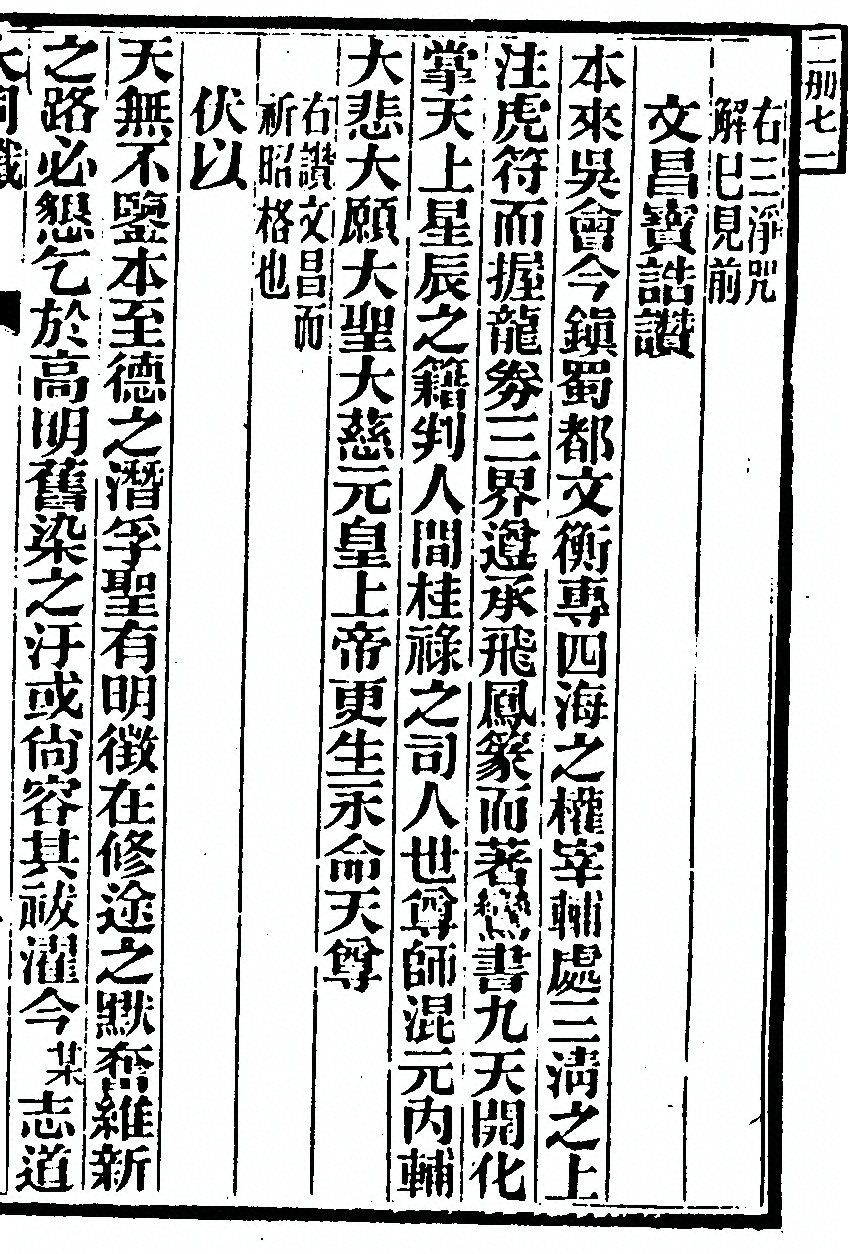 二册七一
右三淨咒
解已見前
文昌寶誥讚
本來吳會今鎭蜀都文衡專四海之權宰輔處三淸之上
注虎符而握龍劵三界遵承飛鳳篆而著鸞書九天開化
掌天上星辰之籍判人間桂祿之司人世尊師混元內輔
大悲大願大聖大慈元皇上帝更生永命天尊
右讚文昌而
祈昭格也
伏以
天無不鑒本至德之潛孚聖有明徵在修途之默奮維新
之路必懇乞於高明舊染之汙或尙容其祓濯今某志道